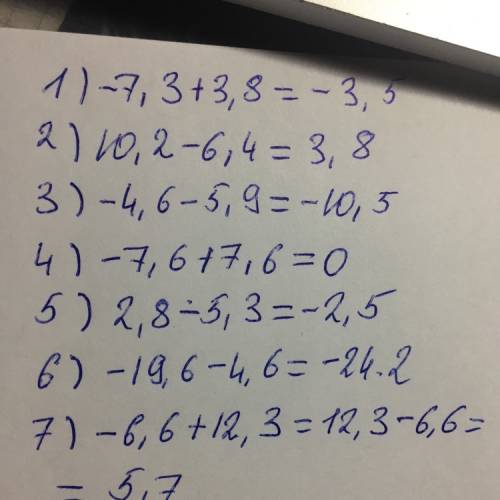 1) -7,3+3,8=-3,5
2) 10,2-6,4=3,8
3) -4,6-5,9=-10,5
4) -7,6+7,6=0
5) 2,8-5,3=-2,5
6) -19,6-4,6=-24.2
7) -6,6+12,3=12,3-6,6=
= 5,7